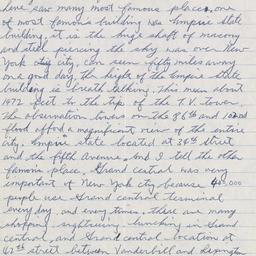 have saw many most famous place, one
of most famous building was Empire State
building, it is the huge shaft of masony
and steel piercing the sky was over New
York city city, can seen fifty miles away
on a good day, the higth of the Empire state
building is breath talking. This mean about
1472 feet to the tip of the T.V. tower.
The observation towers on the 86th and 102nd
flood afford a magnificent view of the entire
city. Empire state located at 34th street
and the fifth avenue. And I tell the other
famous place, Grand central was very
important of New York city because 400,000
people use Grand central terminal
every day, and every times, there are many
shopping, sightseeing, lunching in Grand
central, and Grand central location at
42th street between Vanderbill and Lexington